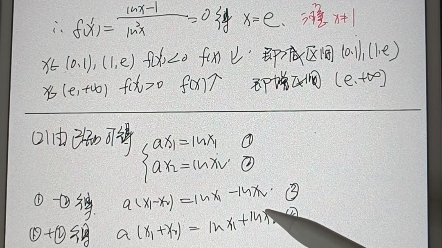 ∴ f'(x) = (lnx-1)/(ln²x) = 0 得 x=e. x≠1
x∈(0,1),(1,e) f'(x)<0 f(x)↓ 即减区间(0,1),(1,e)
x∈(e,+∞) f'(x)>0 f(x)↑ 即增区间(e,+∞)
(2)由已知可得
ax₁=lnx₁ ①
ax₂=lnx₂ ②
①-②得 a(x₁-x₂)=lnx₁-lnx₂ ③
①+②得 a(x₁+x₂)=lnx₁+lnx₂